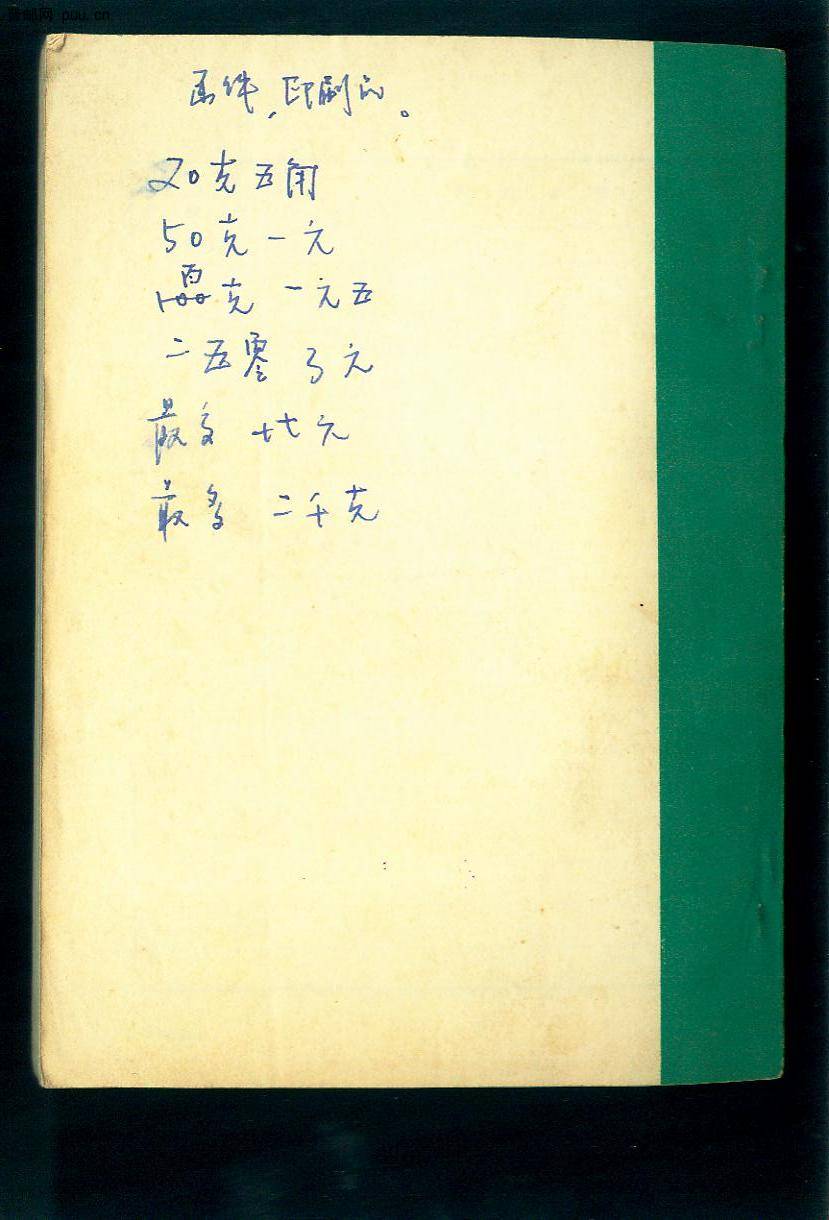 普邮网 puu.cn
函件,印刷品。
20克五角
50克一元
百
100克 一元五
二五零 3元
最多 十七元
最多 二千克